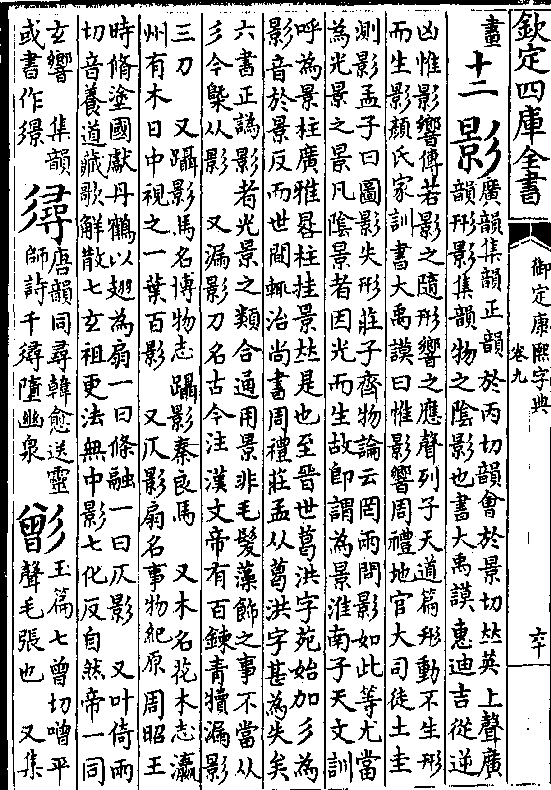 欽定四庫全書
御定康熙字典
卷九
六十
畫 十二 影
廣韻集韻正韻於丙切韻會於景切𠀤英上聲廣
韻形影集韻物之陰影也書大禹謨惠迪吉從逆
凶惟影響傳若影之隨形響之應聲列子天道篇形動不生形
而生影顏氏家訓書大禹謨曰惟影響周禮地官大司徒土圭
測影孟子曰圖影失形莊子齊物論云罔兩問影如此等尤當
為光景之景凡陰景者因光而生故即謂為景淮南子天文訓
呼為景柱廣雅晷柱挂景𠀤是也至晉世葛洪字苑始加彡為
影音於景反而世間輒治尚書周禮莊孟从葛洪字甚為失矣
六書正譌影者光景之類合通用景非毛髮藻飾之事不當从
彡今槩从影 又漏影刀名古今注漢文帝有百鍊青犢漏影
三刀 又躡影馬名博物志躡影秦良馬 又木名花木志瀛
州有木日中視之一葉百影 又仄影扇名事物紀原周昭王
時脩塗國獻丹鵲以翅為扇一曰條融一曰仄影 又叶倚兩
切音養道藏歌解散七玄祖更法無中影七化反自然帝一同
玄響 集韻
或書作
𢒫
唐韻同尋韓愈送靈
師詩千𢒫墮幽泉
玉篇七曾切噌平
聲毛張也 又集